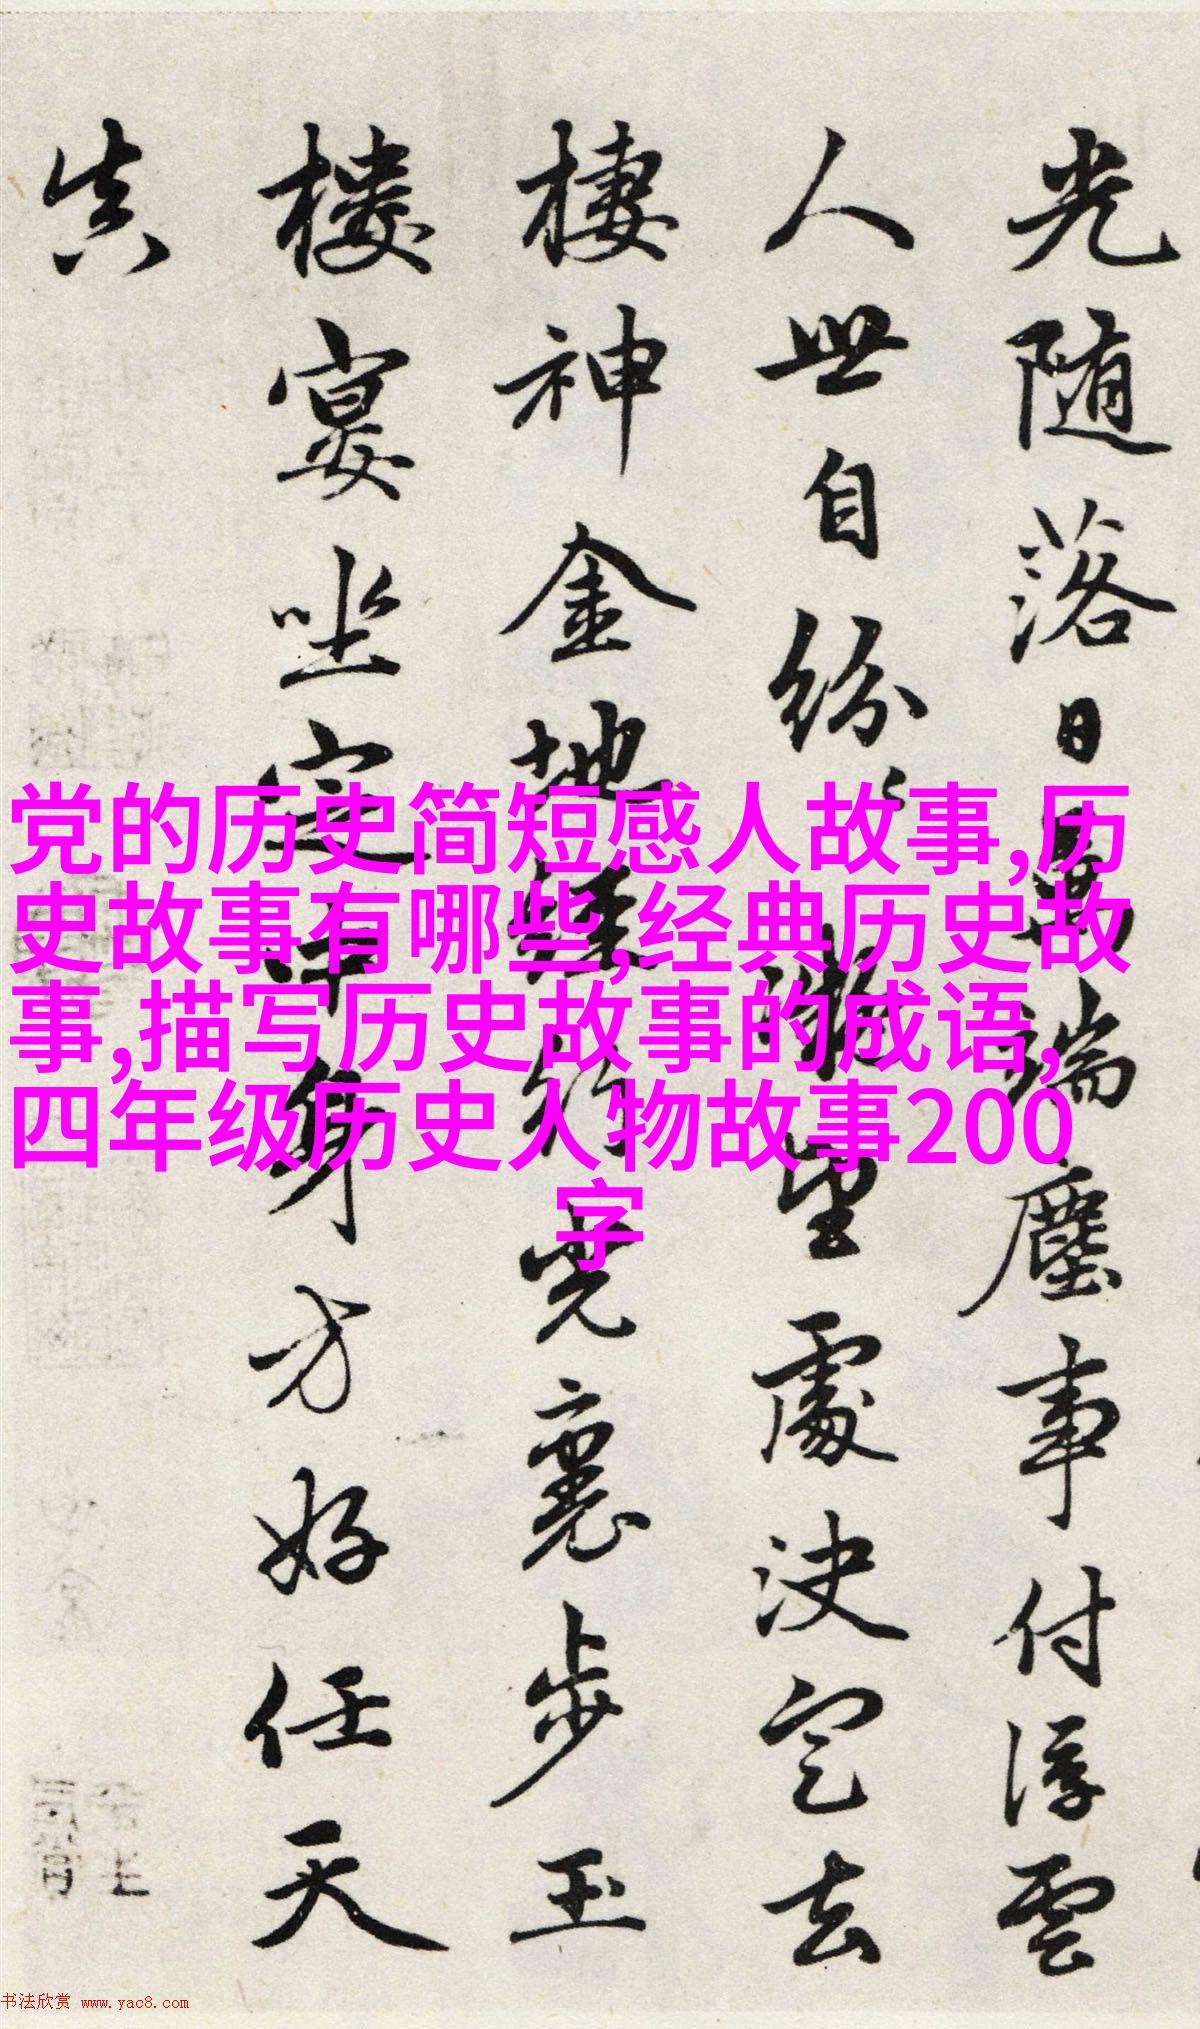 光随落日萬端塵事付浮雲
人世自紛〻望處决定去
棲神金地經行光裏步玉
樓宴坐定中身方好任天
真
党的历史简短感人故事,历
史故事有哪些,经典历史故
事,描写历史故事的成语,
四年级历史人物故事200
字
书法欣赏 www.yac8.com